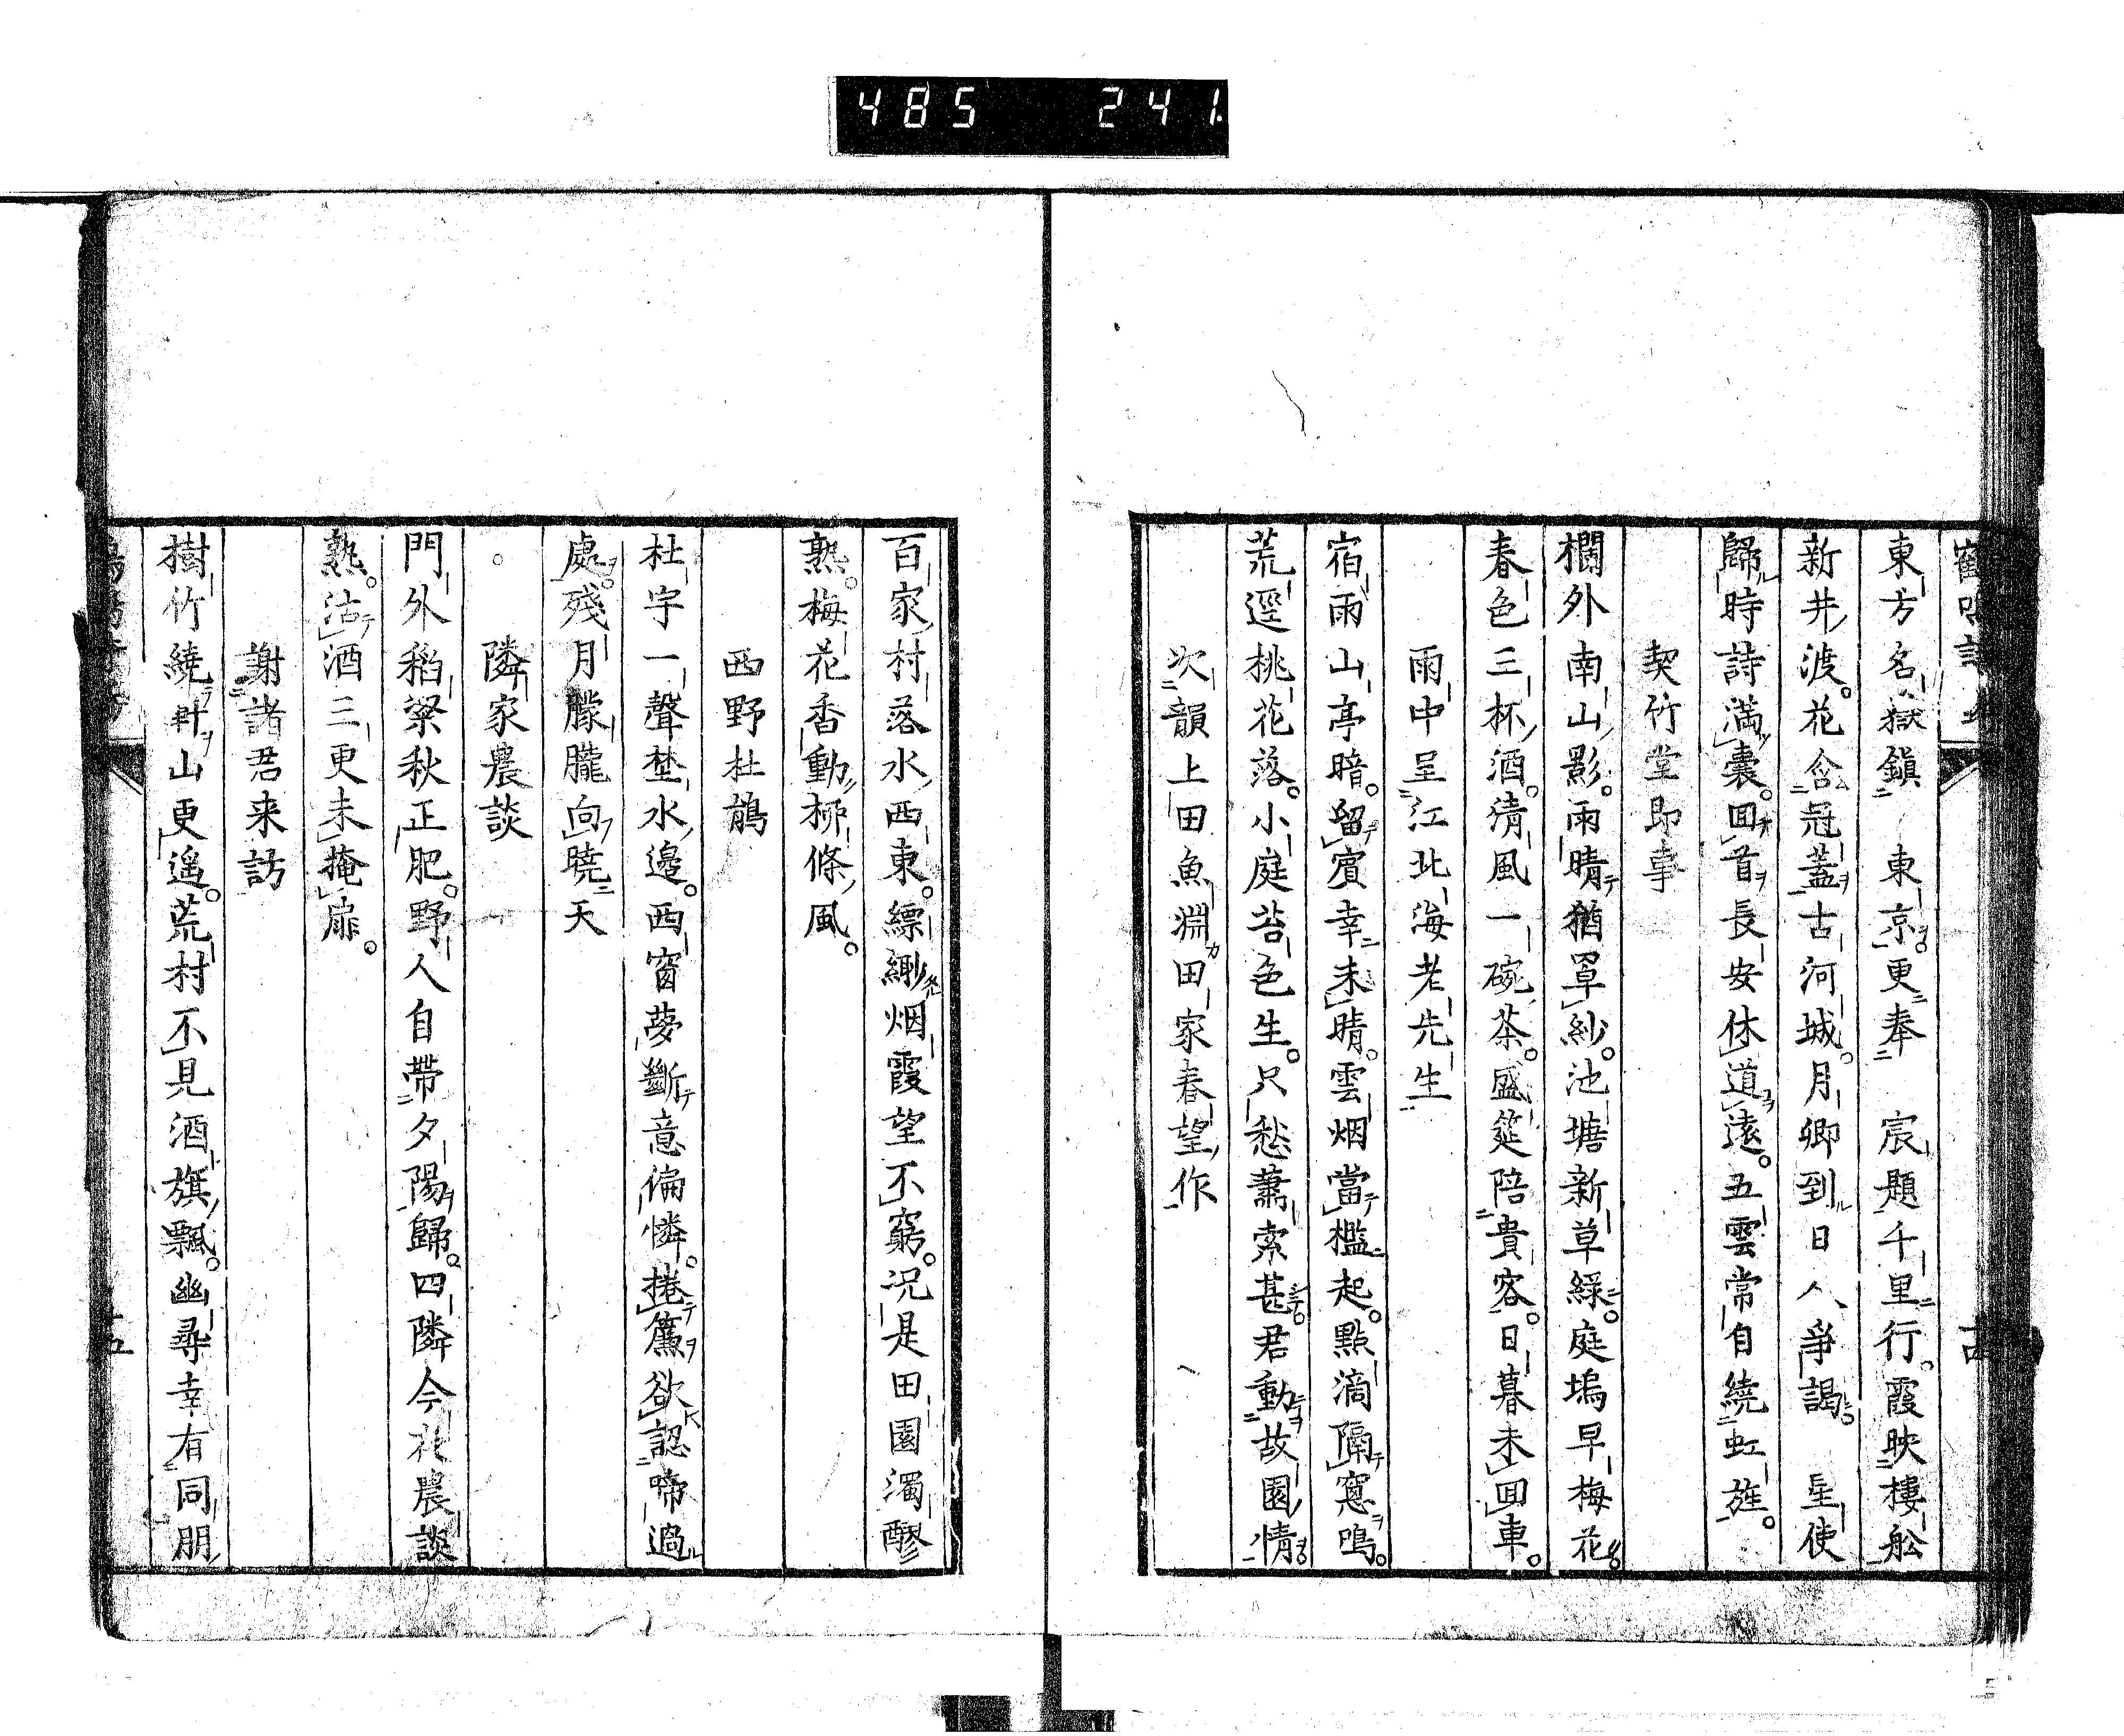 485 241
東方名嶽鎭 東京更奉 宸題千里行霞映樓舩
新井渡花含冠蓋古河城月卿到日人爭謁 星使
歸時詩滿嚢回首長安休道遠五雲常自繞虹旌
契竹堂即事
欄外南山影雨晴猶罩紗池塘新草綠庭塢早梅花
春色三杯酒清風一碗茶盛筵陪貴客日暮未回車
雨中呈江北海老先生
宿雨山亭暗留賓幸未晴雲烟當檻起點滴隔窓鳴
荒逕桃花落小庭苔色生只愁蕭索甚君動故園情
次韻上田魚淵田家春望作
百家村落水西東縹緲烟霞望不窮况是田園濁醪
熟梅花香動柳條風
西野杜鵑
杜宇一聲埜水邊西窗夢斷意偏憐捲簾欲認啼過
處殘月朦朧向曉天
隣家農談
門外稻粱秋正肥野人自帶夕陽歸四隣今夜農談
熟沽酒三更未掩扉
謝諸君来訪
樹竹繞軒山更遥荒村不見酒旗飄幽尋幸有同朋